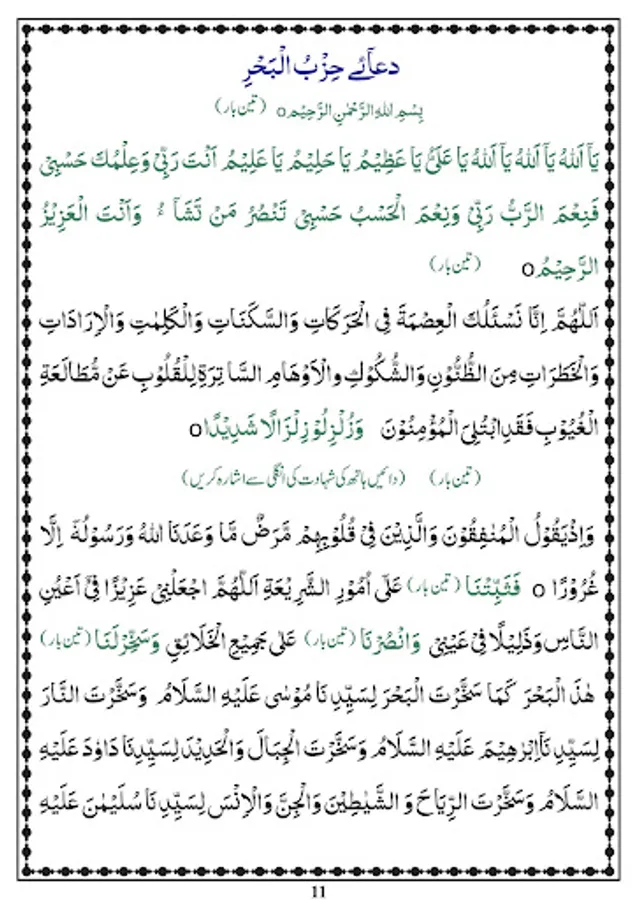 دعائے حِزْبُ الْبَحْرِ
بِسْمِ اللهِ الرَّحْمٰنِ الرَّحِيْمِ o (تین بار)
يَآ اَللهُ يَآ اَللهُ يَآ اَللهُ يَا عَلِيُّ يَا عَظِيْمُ يَا حَلِيْمُ يَا عَلِيْمُ اَنْتَ رَبِّيْ وَعِلْمُكَ حَسْبِيْ
فَنِعْمَ الرَّبُّ رَبِّيْ وَنِعْمَ الْحَسْبُ حَسْبِيْ تَنْصُرُ مَنْ تَشَآءُ وَاَنْتَ الْعَزِيْزُ
الرَّحِيْمُ o (تین بار)
اَللّٰهُمَّ اِنَّا نَسْئَلُكَ الْعِصْمَةَ فِي الْحَرَكَاتِ وَالسَّكَنَاتِ وَالْكَلِمٰتِ وَالْاِرَادَاتِ
وَالْخَطَرَاتِ مِنَ الظُّنُوْنِ وَالشُّكُوْكِ وَالْاَوْهَامِ السَّاتِرَةِ لِلْقُلُوْبِ عَنْ مُّطَالَعَةِ
الْغُيُوْبِ فَقَدِ ابْتُلِيَ الْمُؤْمِنُوْنَ وَزُلْزِلُوْ زِلْزَالًا شَدِيْدًا o
(تین بار) (دائیں ہاتھ کی شہادت کی انگلی سے اشارہ کریں)
وَاِذْيَقُوْلُ الْمُنٰفِقُوْنَ وَالَّذِيْنَ فِيْ قُلُوْبِهِمْ مَّرَضٌ مَّا وَعَدَنَا اللهُ وَرَسُوْلُهٗ اِلَّا
غُرُوْرًا o فَثَبِّتْنَا (تین بار) عَلٰٓى اُمُوْرِ الشَّرِيْعَةِ اَللّٰهُمَّ اجْعَلْنِيْ عَزِيْزًا فِيْٓ اَعْيُنِ
النَّاسِ وَذَلِيْلًا فِيْ عَيْنِيْ وَانْصُرْنَا (تین بار) عَلٰى جَمِيْعِ الْخَلَائِقِ وَسَخِّرْلَنَا (تین بار)
هٰذَ الْبَحْرَ كَمَا سَخَّرْتَ الْبَحْرَ لِسَيِّدِنَا مُوْسٰى عَلَيْهِ السَّلَامُ وَسَخَّرْتَ النَّارَ
لِسَيِّدِنَآ اِبْرٰهِيْمَ عَلَيْهِ السَّلَامُ وَسَخَّرْتَ الْجِبَالَ وَالْحَدِيْدَ لِسَيِّدِنَا دَاوٗدَ عَلَيْهِ
السَّلَامُ وَسَخَّرْتَ الرِّيَاحَ وَ الشَّيٰطِيْنَ وَالْجِنَّ وَالْاِنْسَ لِسَيِّدِنَا سُلَيْمٰنَ عَلَيْهِ
11